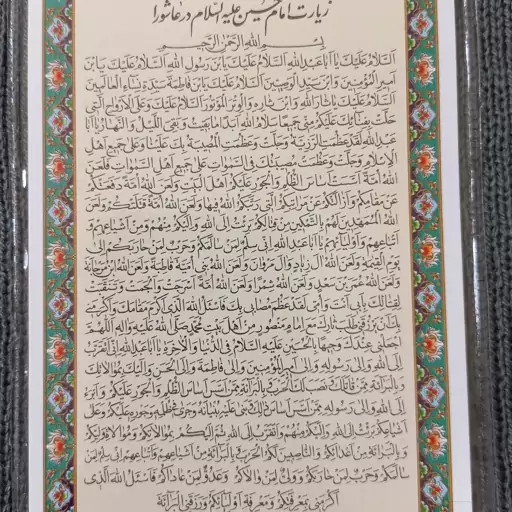 زیارت امام حسین علیه السلام در عاشورا
بِسْمِ اللهِ الرَّحْمنِ الرَّحیمِ
اَلسَّلامُ عَلَیْکَ یا اَبا عَبْدِاللهِ اَلسَّلامُ عَلَیْکَ یَابْنَ رَسُولِ اللهِ اَلسَّلامُ عَلَیْکَ یَابْنَ
اَمیرِ الْمُؤْمِنینَ وَابْنَ سَیِّدِ الْوَصِیّینَ اَلسَّلامُ عَلَیْکَ یَابْنَ فاطِمَةَ سَیِّدَةِ نِساءِ الْعالَمینَ
اَلسَّلامُ عَلَیْکَ یا ثارَ اللهِ وَابْنَ ثارِهِ وَالْوِتْرَ الْمَوْتُورَ اَلسَّلامُ عَلَیْکَ وَعَلَی الْاَرْواحِ الَّتی
حَلَّتْ بِفِنائِکَ عَلَیْکُمْ مِنّی جَمیعًا سَلامُ اللهِ اَبَدًا ما بَقیتُ وَبَقِیَ اللَّیْلُ وَالنَّهارُ یا اَبا
عَبْدِاللهِ لَقَدْ عَظُمَتِ الرَّزِیَّةُ وَجَلَّتْ وَعَظُمَتِ الْمُصیبَةُ بِکَ عَلَیْنا وَعَلی جَمیعِ اَهْلِ
الْاِسْلامِ وَجَلَّتْ وَعَظُمَتْ مُصیبَتُکَ فِی السَّمواتِ عَلی جَمیعِ اَهْلِ السَّمواتِ فَلَعَنَ
اللهُ اُمَّةً اَسَّسَتْ اَساسَ الظُّلْمِ وَالْجَوْرِ عَلَیْکُمْ اَهْلَ الْبَیْتِ وَلَعَنَ اللهُ اُمَّةً دَفَعَتْکُمْ
عَنْ مَقامِکُمْ وَاَزالَتْکُمْ عَنْ مَراتِبِکُمُ الَّتی رَتَّبَکُمُ اللهُ فیها وَلَعَنَ اللهُ اُمَّةً قَتَلَتْکُمْ وَلَعَنَ
اللهُ الْمُمَهِّدینَ لَهُمْ بِالتَّمْکینِ مِنْ قِتالِکُمْ بَرِئْتُ اِلَی اللهِ وَاِلَیْکُمْ مِنْهُمْ وَمِنْ اَشْیاعِهِمْ وَ
اَتْباعِهِمْ وَاَوْلِیائِهِمْ یا اَبا عَبْدِاللهِ اِنّی سِلْمٌ لِمَنْ سالَمَکُمْ وَحَرْبٌ لِمَنْ حارَبَکُمْ اِلی
یَوْمِ الْقِیمَةِ وَلَعَنَ اللهُ آلَ زِیادٍ وَآلَ مَرْوانَ وَلَعَنَ اللهُ بَنی اُمَیَّةَ قاطِبَةً وَلَعَنَ اللهُ ابْنَ مَرْجانَةَ
وَلَعَنَ اللهُ عُمَرَ بْنَ سَعْدٍ وَلَعَنَ اللهُ شِمْرًا وَلَعَنَ اللهُ اُمَّةً اَسْرَجَتْ وَاَلْجَمَتْ وَتَنَقَّبَتْ
لِقِتالِکَ بِاَبی اَنْتَ وَاُمّی لَقَدْ عَظُمَ مُصابی بِکَ فَاَسْئَلُ اللهَ الَّذی اَکْرَمَ مَقامَکَ وَاَکْرَمَنی
بِکَ اَنْ یَرْزُقَنی طَلَبَ ثارِکَ مَعَ اِمامٍ مَنْصُورٍ مِنْ اَهْلِ بَیْتِ مُحَمَّدٍ صَلَّی اللهُ عَلَیْهِ وَالِهِ اَللّهُمَّ
اجْعَلْنی عِنْدَکَ وَجیهًا بِالْحُسَیْنِ عَلَیْهِ السَّلامُ فِی الدُّنْیا وَالْاخِرَةِ یا اَبا عَبْدِاللهِ اِنّی اَتَقَرَّبُ
اِلَی اللهِ وَاِلی رَسُولِهِ وَاِلی اَمیرِ الْمُؤْمِنینَ وَاِلی فاطِمَةَ وَاِلَی الْحَسَنِ وَاِلَیْکَ بِمُوالاتِکَ
وَبِالْبَرائَةِ مِمَّنْ قاتَلَکَ وَنَصَبَ لَکَ الْحَرْبَ وَبِالْبَرائَةِ مِمَّنْ اَسَّسَ اَساسَ الظُّلْمِ وَالْجَوْرِ عَلَیْکُمْ وَاَبْرَءُ
اِلَی اللهِ وَاِلی رَسُولِهِ مِمَّنْ اَسَّسَ اَساسَ ذلِکَ وَبَنی عَلَیْهِ بُنْیانَهُ وَجَری فی ظُلْمِهِ وَجَوْرِهِ عَلَیْکُمْ وَعَلی
اَشْیاعِکُمْ بَرِئْتُ اِلَی اللهِ وَاِلَیْکُمْ مِنْهُمْ وَاَتَقَرَّبُ اِلَی اللهِ ثُمَّ اِلَیْکُمْ بِمُوالاتِکُمْ وَمُوالاةِ وَلِیِّکُمْ
وَبِالْبَرائَةِ مِنْ اَعْدائِکُمْ وَالنّاصِبینَ لَکُمُ الْحَرْبَ وَبِالْبَرائَةِ مِنْ اَشْیاعِهِمْ وَاَتْباعِهِمْ اِنّی سِلْمٌ لِمَنْ
سالَمَکُمْ وَحَرْبٌ لِمَنْ حارَبَکُمْ وَوَلِیٌّ لِمَنْ والاکُمْ وَعَدُوٌّ لِمَنْ عاداکُمْ فَاَسْئَلُ اللهَ الَّذی
اَکْرَمَنی بِمَعْرِفَتِکُمْ وَمَعْرِفَةِ اَوْلِیائِکُمْ وَرَزَقَنِی الْبَرائَةَ